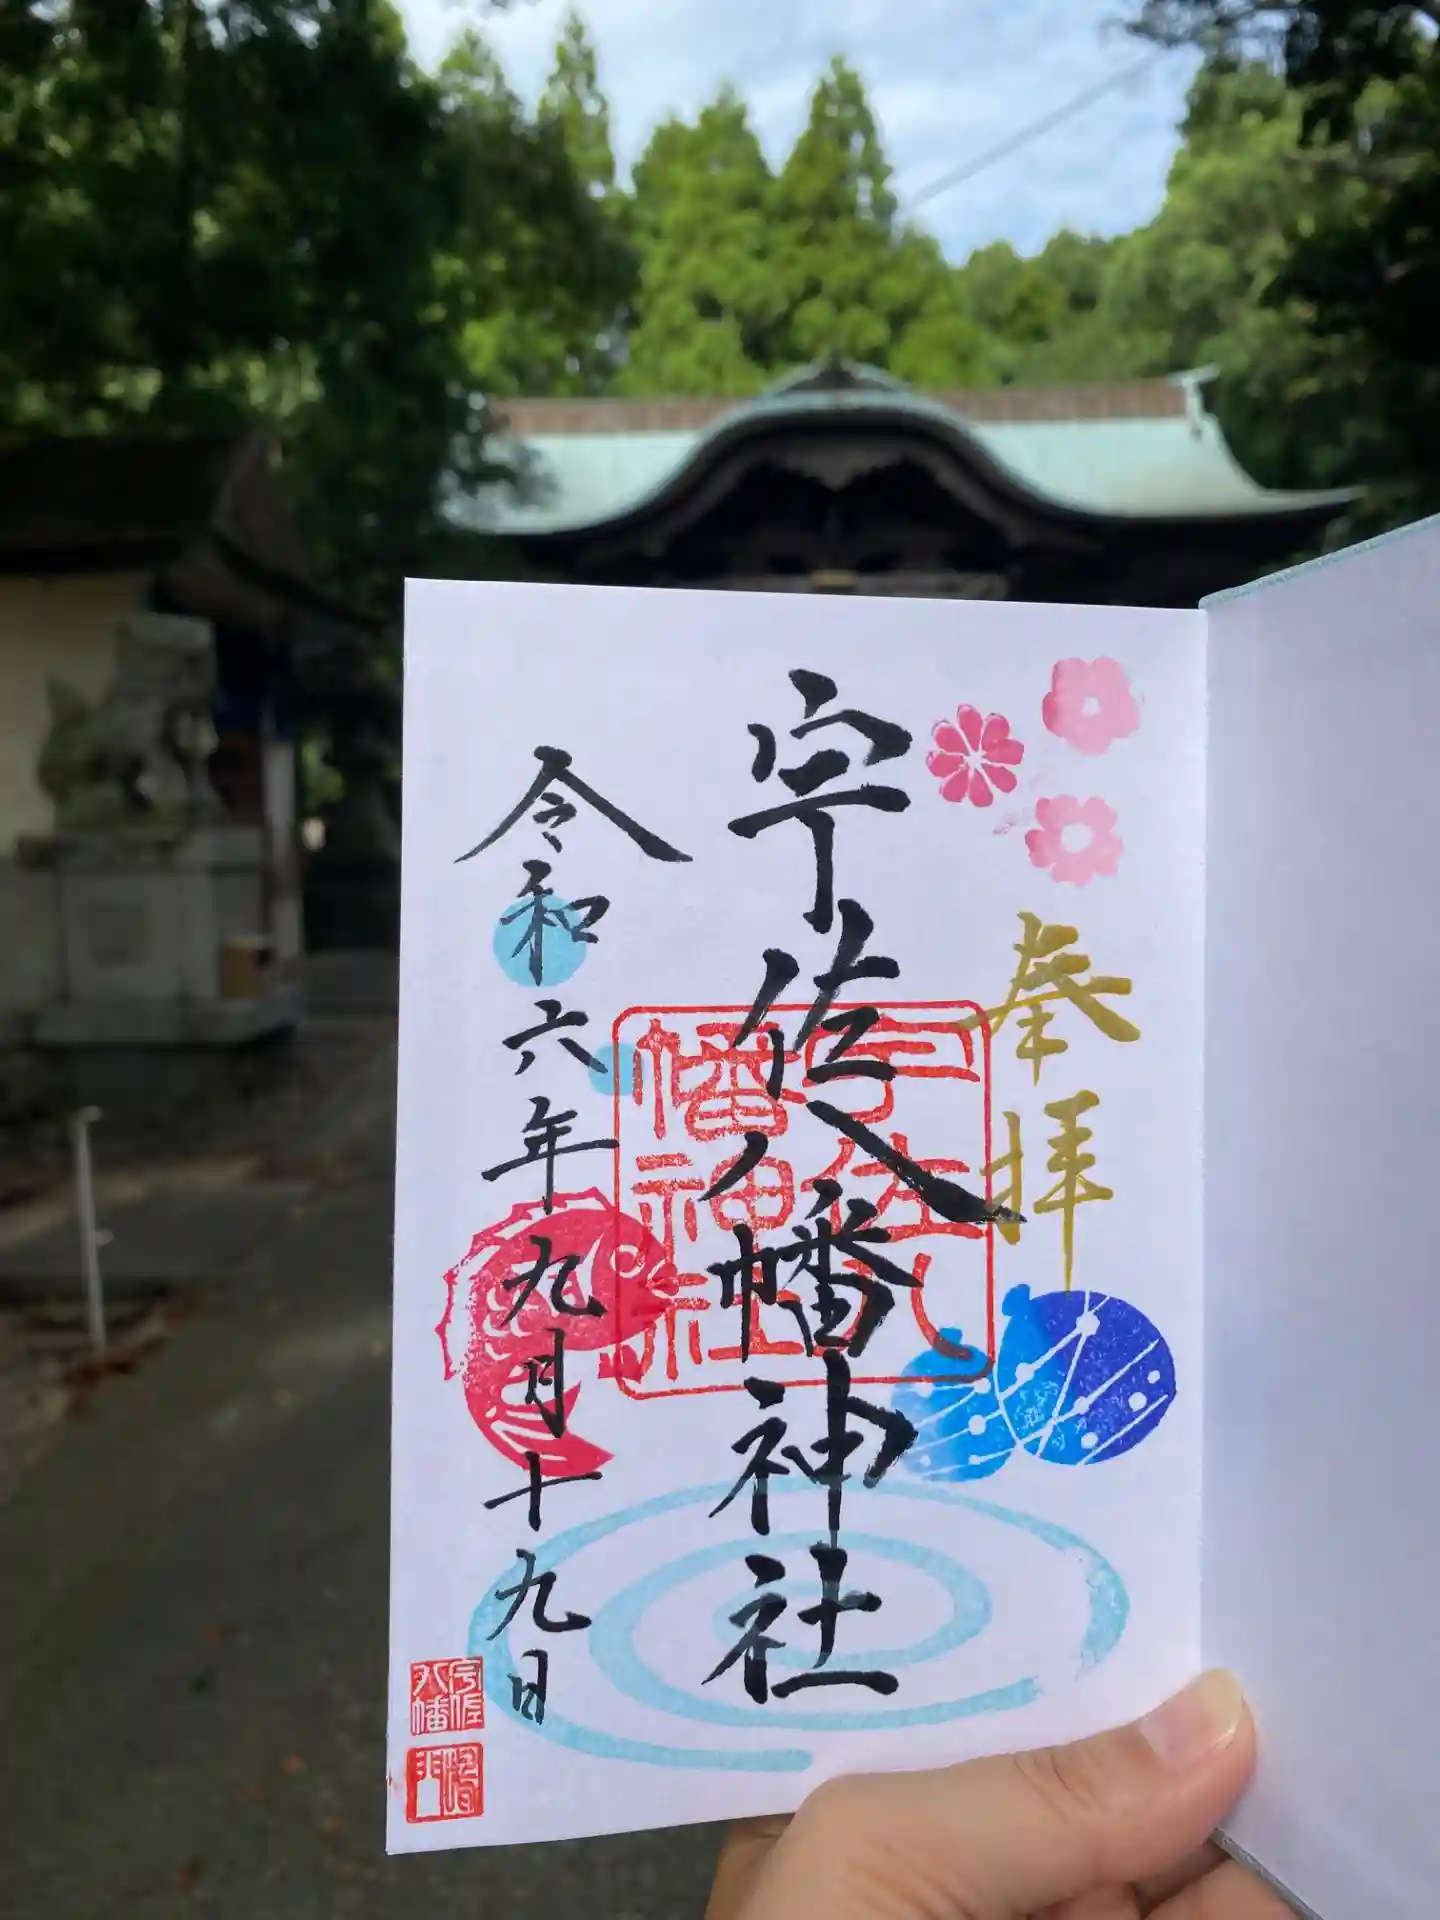 奉拝
宇佐八幡神社
宇佐八
幡神社
令和六年九月十九日
宇佐
八幡